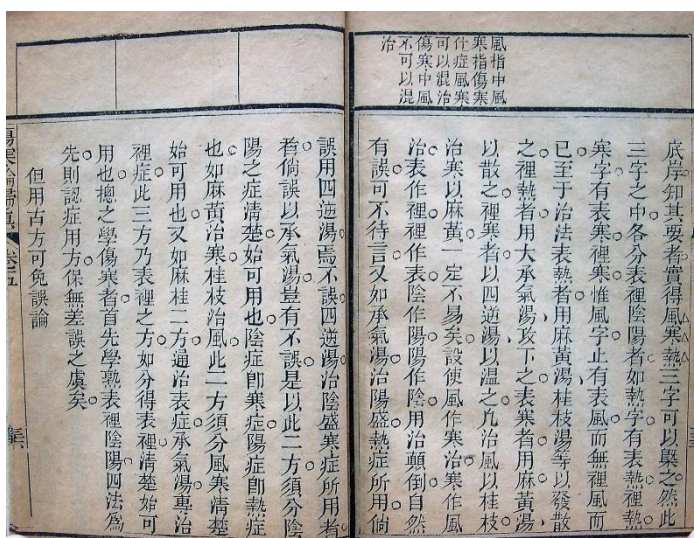 風指中風
寒指傷寒
什症風寒
可以混治
傷寒中風
不可以混
治
底岸知其要者實得風寒熱三字可以槩之然此
三字之中各分表裡陰陽者如熱字有表熱裡熱
寒字有表寒裡寒惟風字止有表風而無裡風而
已至于治法表熱者用麻黃湯桂枝湯等以發散
之裡熱者用大承氣湯攻下之表寒者用麻黃湯
以散之裡寒者以四逆湯以温之凢治風以桂枝
治寒以麻黃一定不易矣設使風作寒治寒作風
治表作裡裡作表陰作陽陽作陰用治顛倒自然
有誤可不待言又如承氣湯治陽盛熱症所用倘
誤用四逆湯焉不誤四逆湯治陰盛寒症所用者
者倘誤以承氣湯豈有不誤是以此二方須分陰
陽之症淸楚始可用也陰症卽寒症陽症卽熱症
也如麻黃治寒桂枝治風此二方須分風寒淸楚
始可用也又如麻桂二方通治表症承氣湯專治
裡症此三方乃表裡之方如分得表裡淸楚始可
用也摠之學傷寒者首先學熟表裡陰陽四法爲
先則認症用方保無差誤之虞矣
但用古方可免誤論
傷寒論
卷五